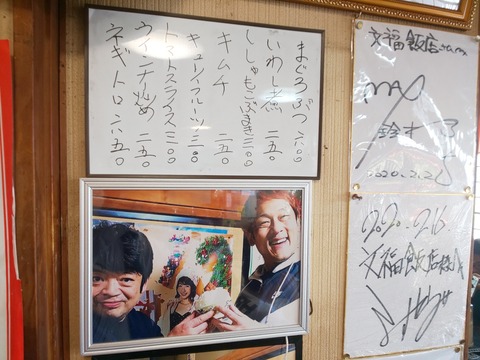 まぐろぶつ 六〇〇
いわし煮 二五〇
ししゃもこぶまき 三〇〇
キムチ 二五〇
キューリフルーツ 三〇〇
トマトスライス 三〇〇
ウインナー炒め 二五〇
ネギトロ 六五〇
文福飯店さん江
MAX
鈴木
2020.2.2
2020.2.16
文福飯店様江